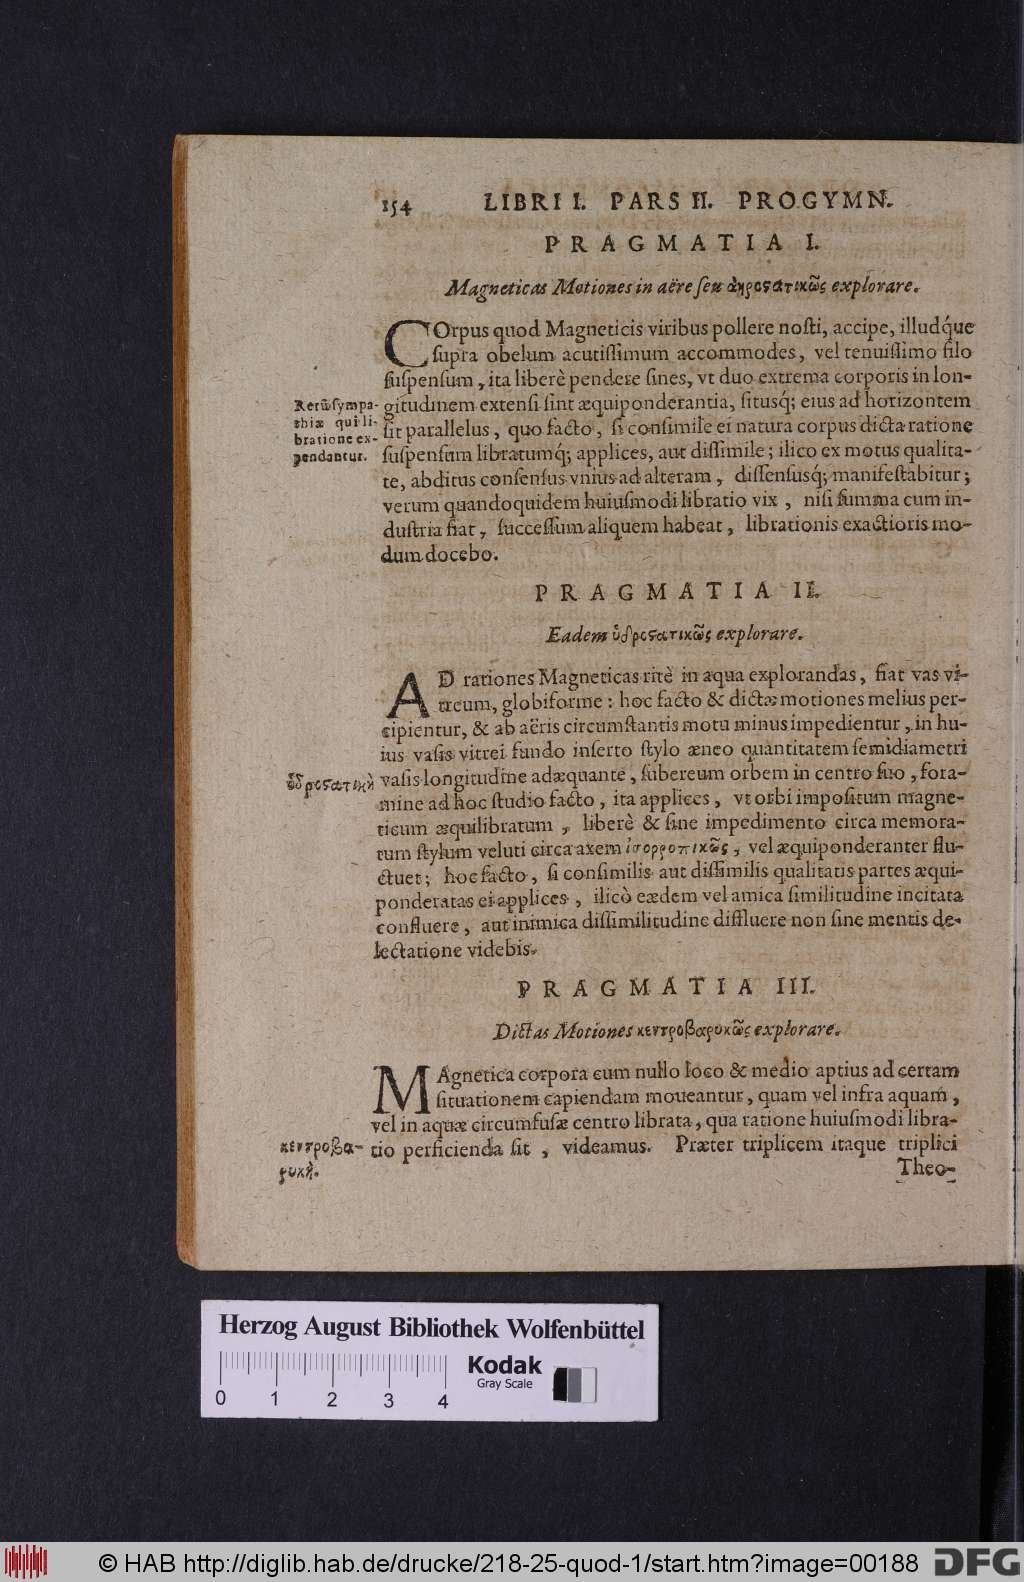 154 LIBRI I. PARS II. PROGYMN.
PRAGMATIA I.
Magneticas Motiones in aëre seu ἀηροστατικῶς explorare.
COrpus quod Magneticis viribus pollere nosti, accipe, illudq́ue
supra obelum acutissimum accommodes, vel tenuissimo filo
suspensum, ita liberè pendere sines, vt duo extrema corporis in lon-
gitudinem extensi sint æquiponderantia, situsq́; eius ad horizontem
sit parallelus, quo facto, si consimile ei natura corpus dicta ratione
suspensum libratumq́; applices, aut dissimile; ilico ex motus qualita-
te, abditus consensus vnius ad alteram, dissensusq́; manifestabitur;
verum quandoquidem huiusmodi libratio vix, nisi summa cum in-
dustria fiat, successum aliquem habeat, librationis exactioris mo-
dum docebo.
Rerũ sympa-
thiæ qui li-
bratione ex-
pendantur.
PRAGMATIA II.
Eadem ὑδροστατικῶς explorare.
AD rationes Magneticas ritè in aqua explorandas, fiat vas vi-
treum, globiforme: hoc facto & dictæ motiones melius per-
cipientur, & ab aëris circumstantis motu minus impedientur, in hu-
ius vasis vitrei fundo inserto stylo æneo quantitatem semidiametri
vasis longitudine adæquante, subereum orbem in centro suo, fora-
mine ad hoc studio facto, ita applices, vt orbi impositum magne-
ticum æquilibratum, liberè & sine impedimento circa memora-
tum stylum veluti circa axem ἰσοῤῥοπικῶς, vel æquiponderanter flu-
ctuet; hoc facto, si consimilis aut dissimilis qualitatis partes æqui-
ponderatas ei applices, ilicò eædem vel amica similitudine incitata
confluere, aut inimica dissimilitudine diffluere non sine mentis de-
lectatione videbis.
ὑδροστατικὴ
PRAGMATIA III.
Dictas Motiones κεντροβαρυκῶς explorare.
MAgnetica corpora cum nullo loco & medio aptius ad certam
situationem capiendam moueantur, quam vel infra aquam,
vel in aquæ circumfusæ centro librata, qua ratione huiusmodi libra-
tio perficienda sit, videamus. Præter triplicem itaque triplici
κεντροβα-
ρυκὴ.
Theo-
Herzog August Bibliothek Wolfenbüttel
0 1 2 3 4
Kodak
Gray Scale
© HAB http://diglib.hab.de/drucke/218-25-quod-1/start.htm?image=00188
DFG